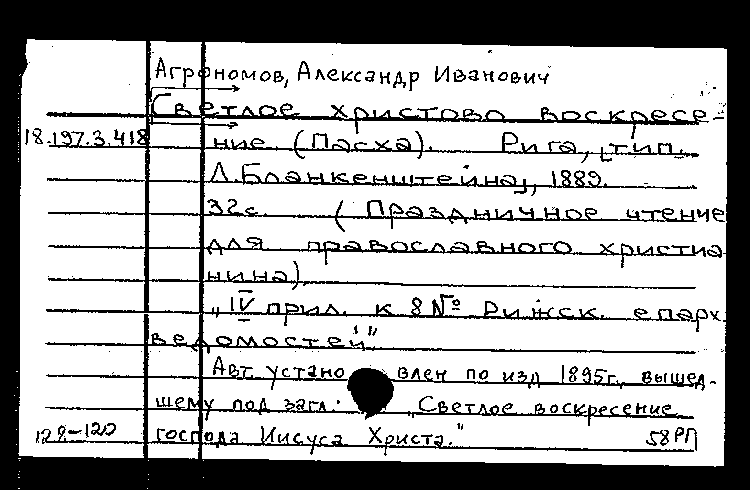 Агрономов, Александр Иванович
Светлое христово воскресе-
18.197.3.418 ние (Пасха). Рига, [тип.
Л. Бланкенштейна], 1889.
32с. (Праздничное чтение
для православного христиа
нина)
„IV прил. к 8№ Рижск. епарх
ведомостей"
Авт. установлен по изд 1895г., вышед-
шему под загл.: „Светлое воскресение
господа Иисуса Христа." 58РП